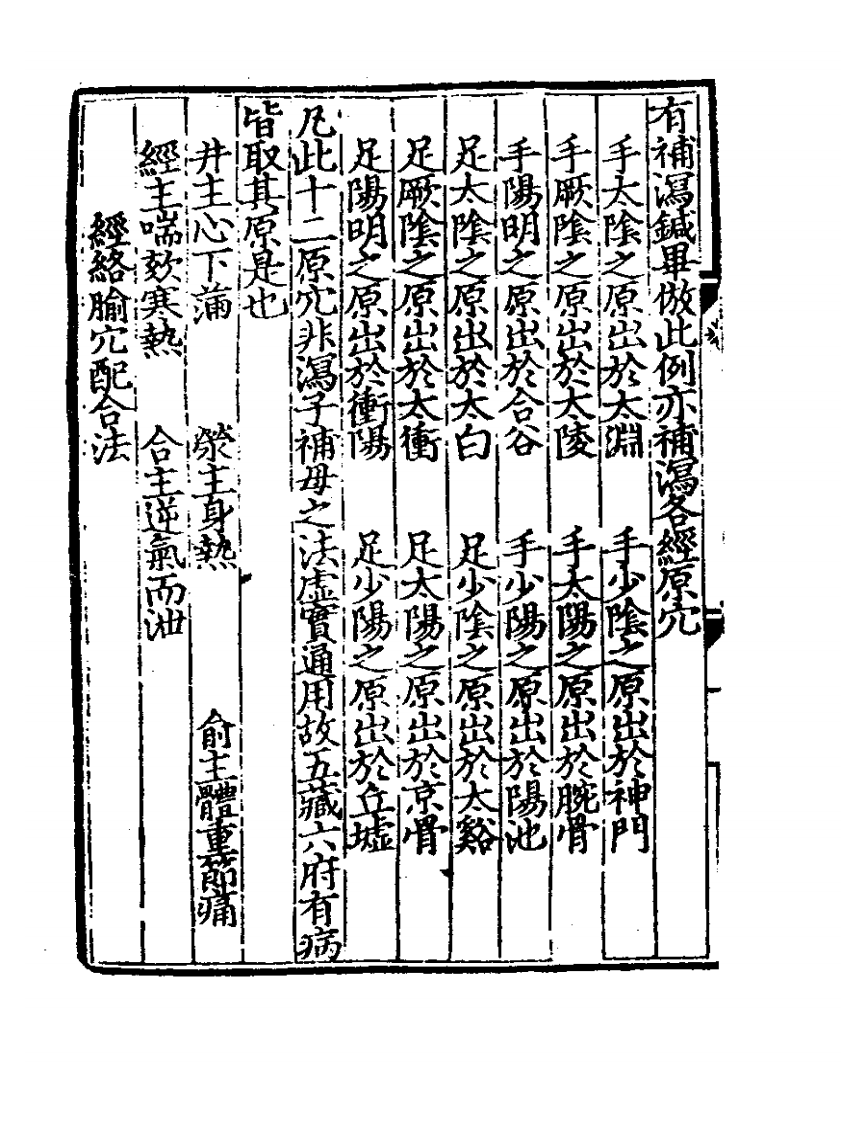 有補瀉鍼畢倣此例亦補瀉各經原穴
手太陰之原出於太淵　手少陰之原出於神門
手厥陰之原出於太陵　手太陽之原出於腕骨
手陽明之原出於合谷　手少陽之原出於陽池
足太陰之原出於太白　足少陰之原出於太谿
足厥陰之原出於太衝　足太陽之原出於京骨
足陽明之原出於衝陽　足少陽之原出於丘墟
凡此十二原穴非瀉子補母之法虛實通用故五藏六府有病
皆取其原是也
井主心下滿　滎主身熱　俞主體重節痛
經主喘欬寒熱　合主逆氣而泄
經絡腧穴配合法